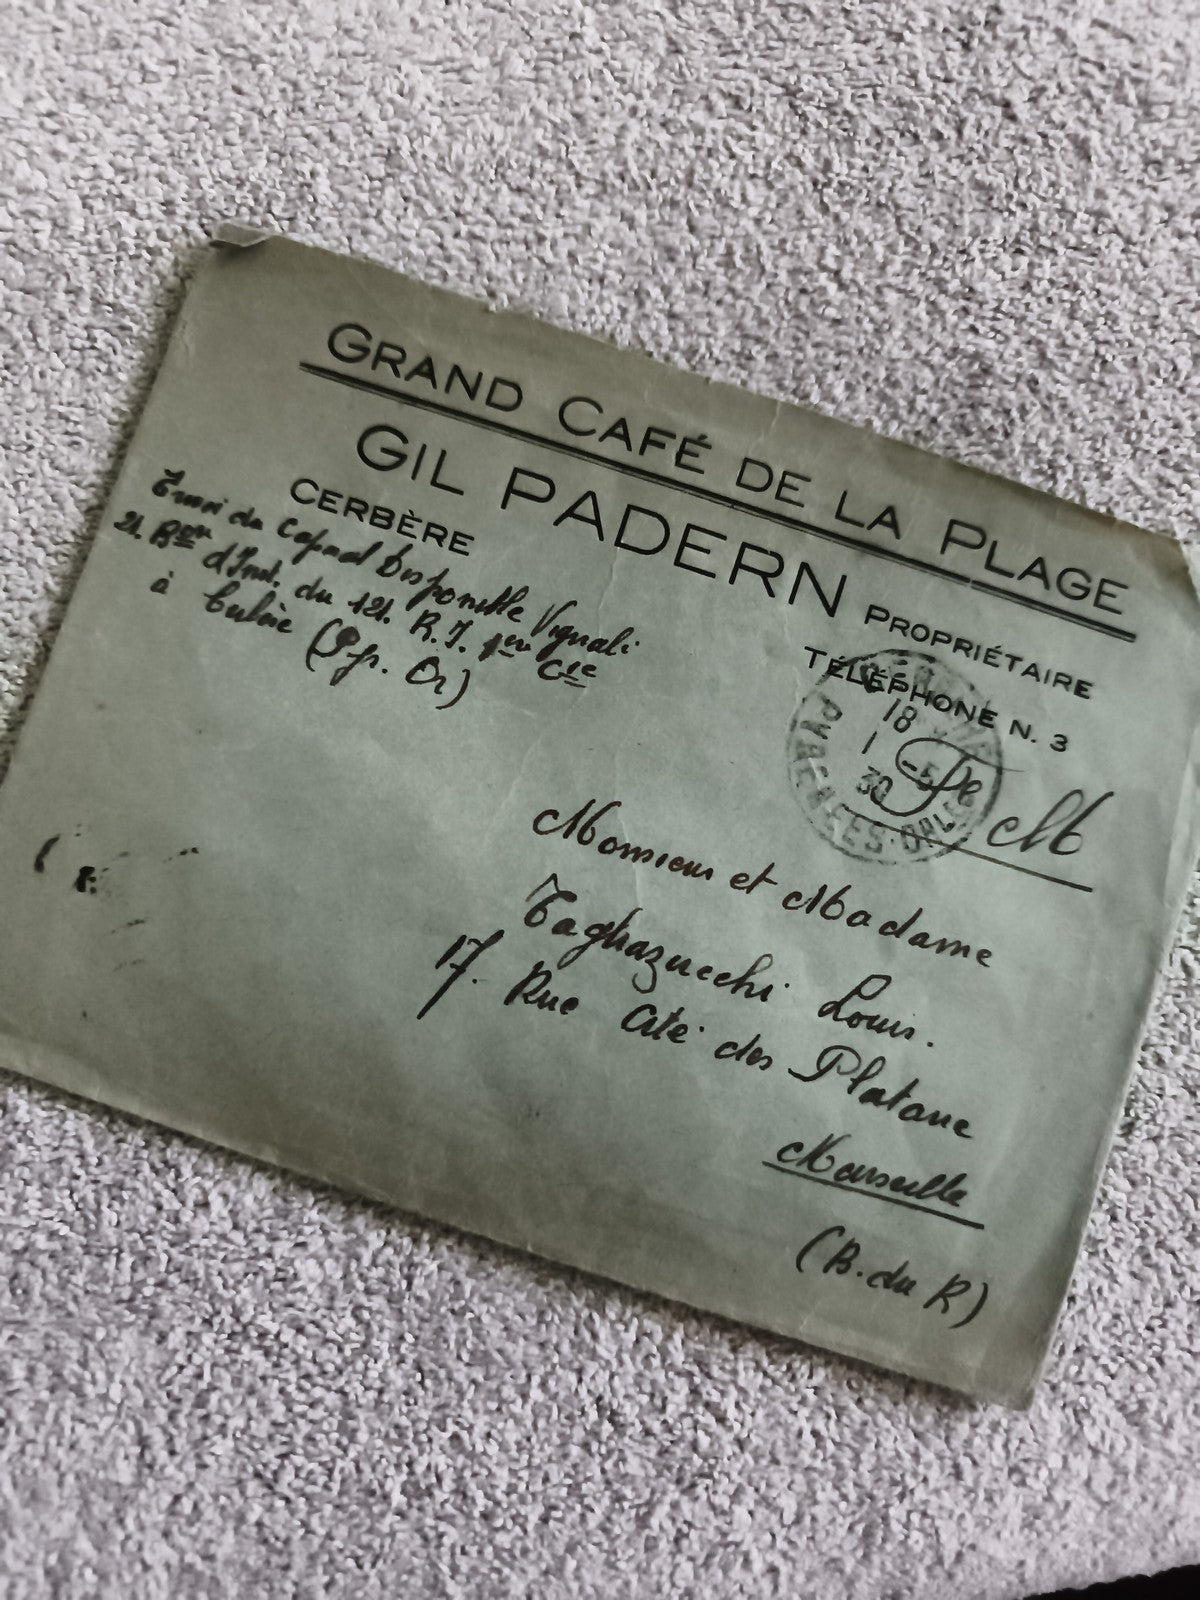 GRAND CAFÉ DE LA PLAGE
GIL PADERN PROPRIÉTAIRE
CERBÈRE
TÉLÉPHONE N. 3
Envoi du Caporal Disponible Vignali
21. Bon d'Inst. du 121. R.I. 1ere Cie
à Cerbère (Py. Or)
18
1 -5
30
PYRENEES-ORLES
F M
Monsieur et Madame
Taghazucchi Louis.
17. Rue Cité des Platane
Marseille
(B. du R)